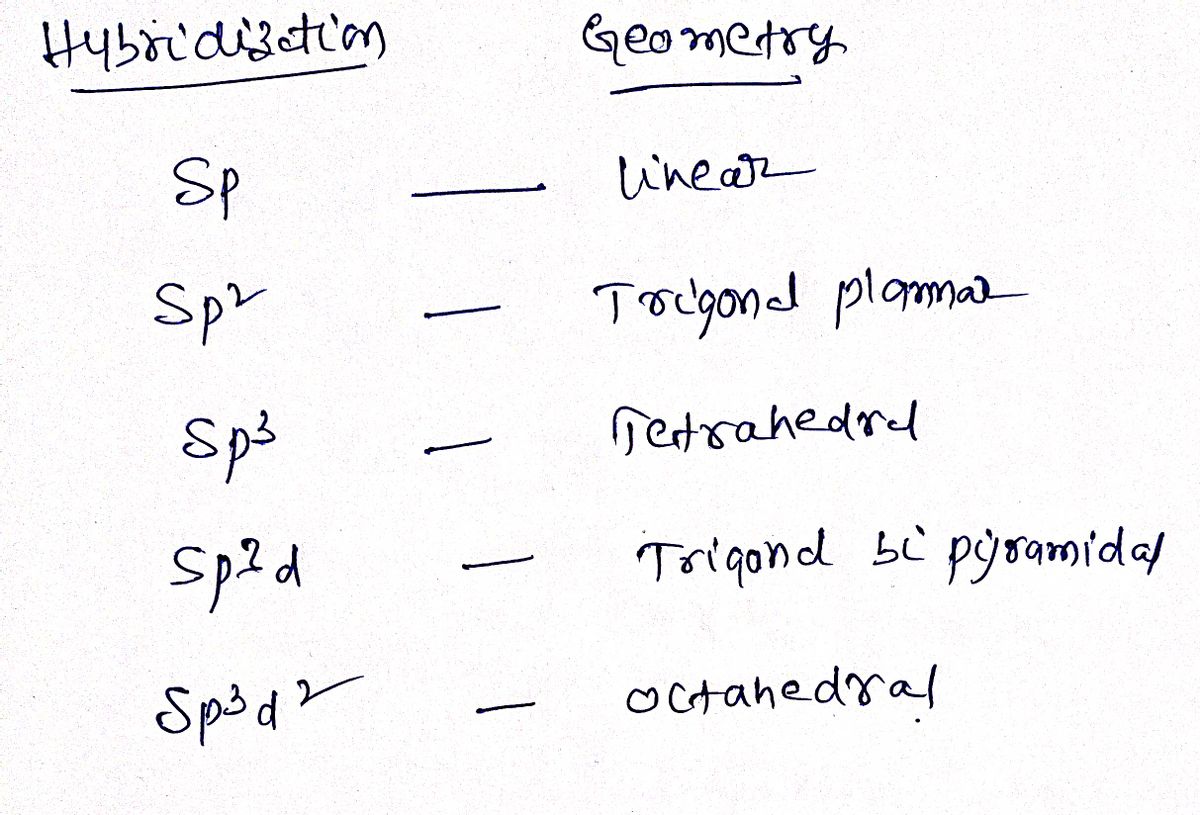 Hybridization Geometry
Sp — linear
Sp² — Trigonal plannar
Sp³ — Tetrahedral
Sp²d — Trigonal bi pyramidal
Sp³d² — octahedral